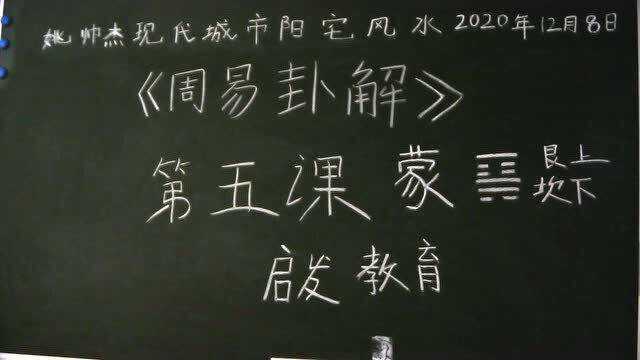 姚帅杰现代城市阳宅风水2020年12月8日
《周易卦解》
第五课 蒙 艮上
坎下
启发教育